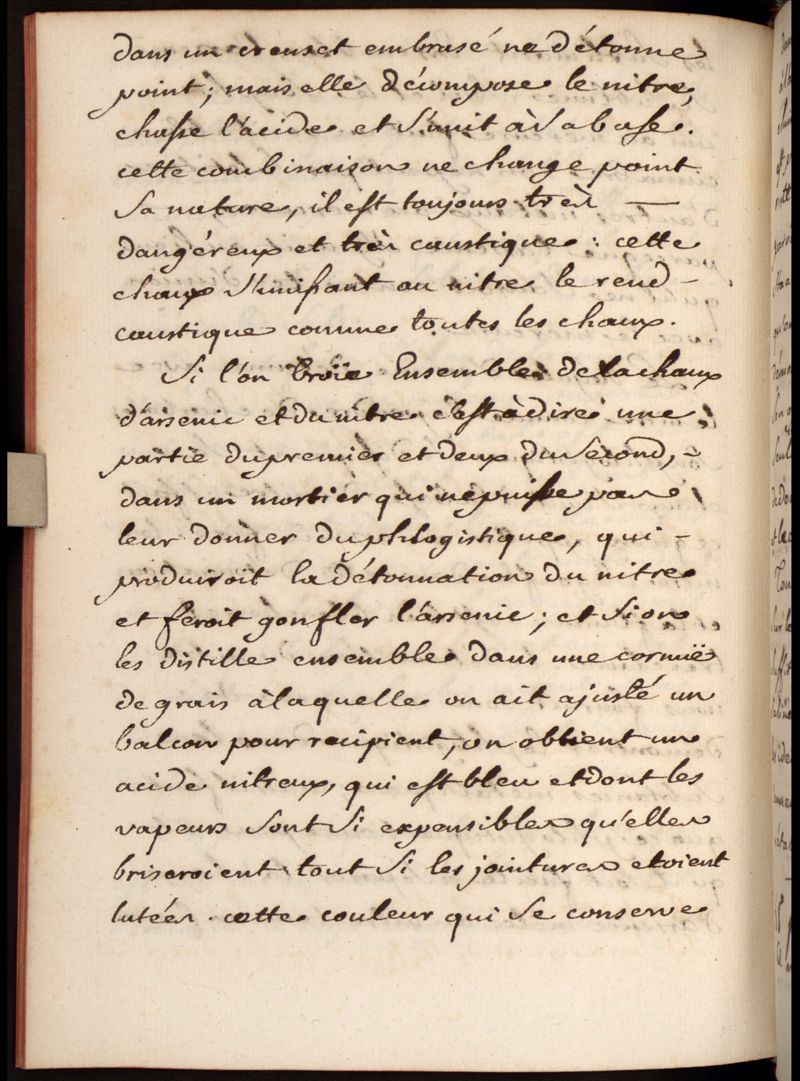 dans un creuset embrasé ne détonne
point; mais elle décompose le nitre,
chasse l'acide et s'unit à sa base.
cette combinaison ne change point
sa nature, il est toujours très —
dangéreux et très caustique: cette
chaux s'unissant au nitre le rend -
caustique comme toutes les chaux.
Si l'on broïe Ensemble de la chaux
d'arsenic et du nitre c'est à dire une
partie du premier et deux du second, -
dans un mortier qui ne puisse pas
leur donner du phlogistique, qui -
produiroit la détonnation du nitre
et feroit gonfler l'arsenic; et si on
les distille ensemble dans une cornuë
de grais à laquelle on ait ajusté un
balcon pour recipient, on obtient un
acide nitreux, qui est bleu et dont les
vapeurs sont si expensibles qu'elles
briseroient tout si les jointures etoient
lutées. cette couleur qui se conserve